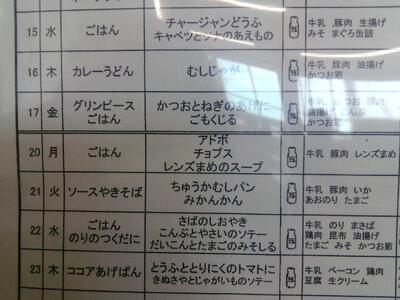 15 水 ごはん チャージャンどうふ 牛乳 豚肉 生揚げ
キャベツとツナのあえもの みそ まぐろ缶詰
16 木 カレーうどん むしじゃが 牛乳 豚肉 油揚げ
かつお節
17 金 グリンピース かつおとねぎのあげに 牛乳 かつお 豚肉
ごはん ごもくじる 油揚げ こんぶ
かつお節
20 月 ごはん アドボ 牛乳 豚肉 レンズまめ
チョプス
レンズまめのスープ
21 火 ソースやきそば ちゅうかむしパン 牛乳 豚肉 いか
みかんかん あおのり たまご
22 水 ごはん さばのしおやき 牛乳 のり まさば
のりのつくだに こんぶとやさいのソテー 鶏肉 昆布 油揚げ
だいこんとたまごのみそしる たまご みそ かつお節
23 木 ココアあげぱん とうふととりにくのトマトに 牛乳 ベーコン 鶏肉
きぬさやとじゃがいものソテー 豆腐 生クリーム